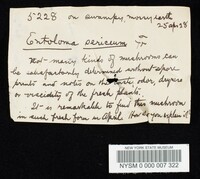 5228 on swampy, mossy earth
25 apr 38
Entoloma sericeum Fr
Not many kinds of mushrooms can
be satisfactorily determined without spore
prints and notes on the taste, odor, degree
or viscidity of the fresh plants.
It is remarkable to find this mushroom
in such fresh form in April. How do you explain it?
NEW YORK STATE MUSEUM
NYSM 0 000 007 322